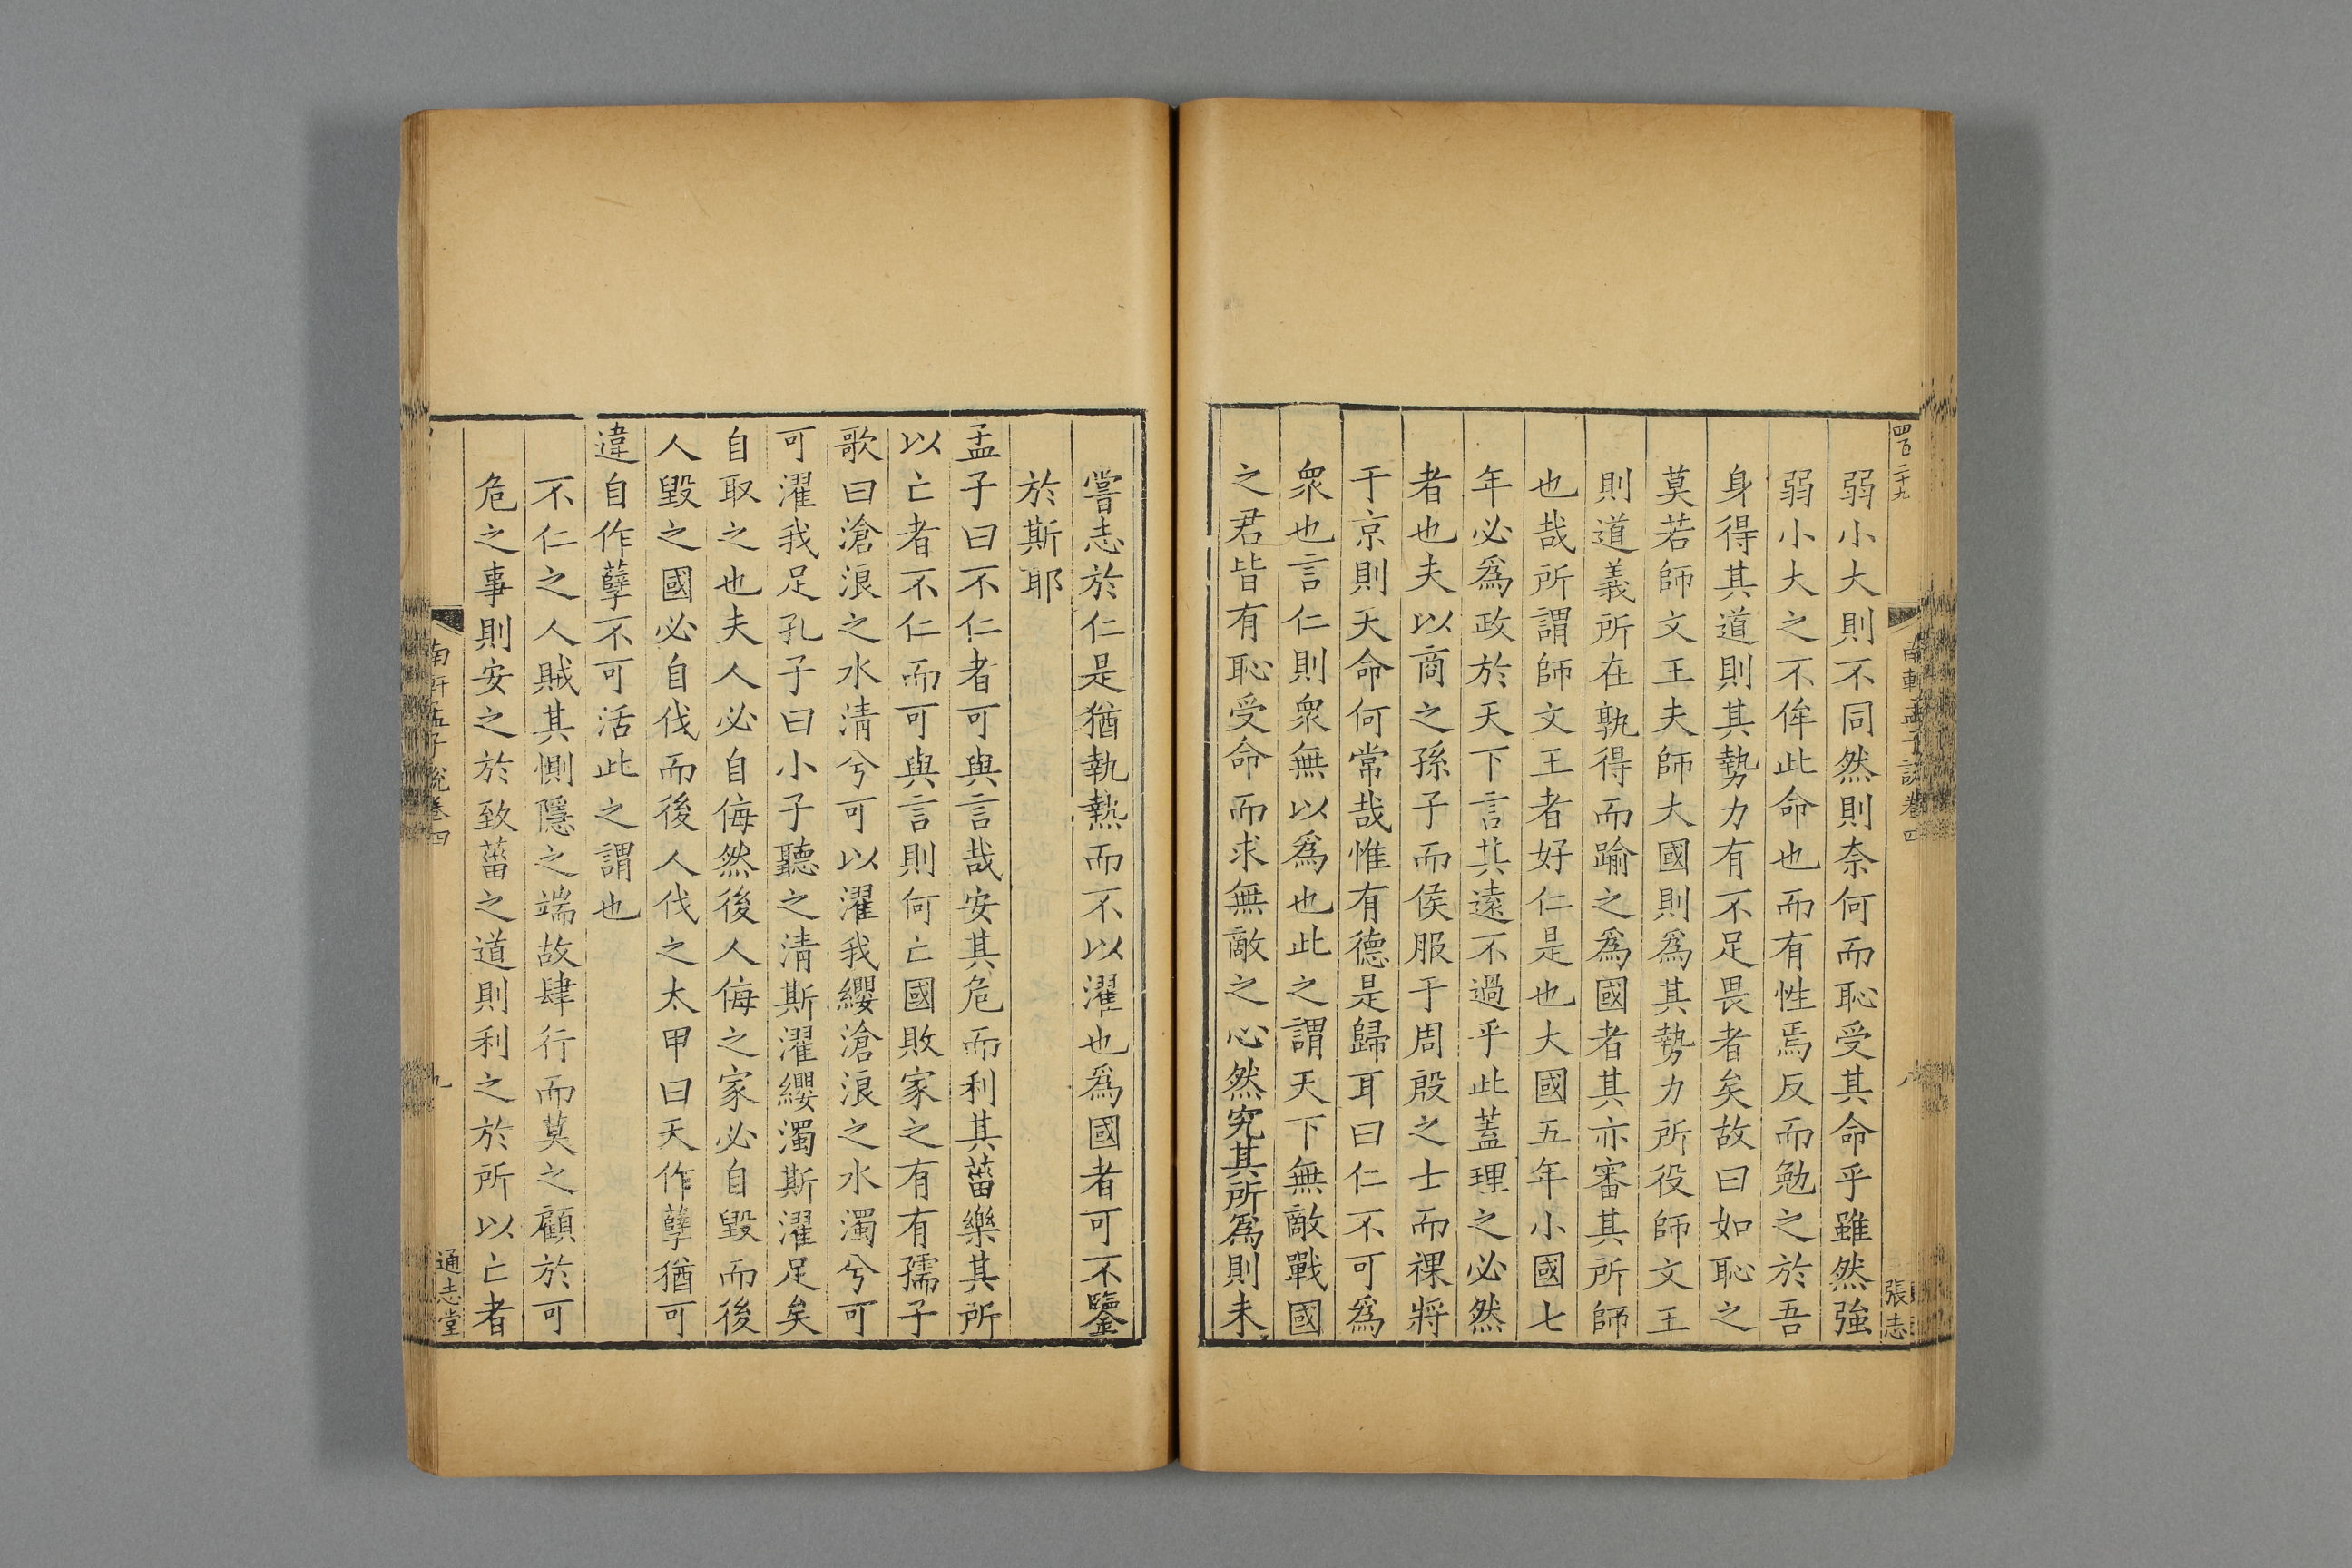 四百二十九
南軒孟子說卷四
八
張志
弱小大則不同然則奈何而恥受其命乎雖然強
弱小大之不侔此命也而有性焉反而勉之於吾
身得其道則其勢力有不足畏者矣故曰如恥之
莫若師文王夫師大國則爲其勢力所役師文王
則道義所在孰得而踰之爲國者其亦審其所師
也哉所謂師文王者好仁是也大國五年小國七
年必爲政於天下言其遠不過乎此蓋理之必然
者也夫以商之孫子而侯服于周殷之士而祼將
于京則天命何常哉惟有德是歸耳曰仁不可爲
衆也言仁則衆無以爲也此之謂天下無敵戰國
之君皆有恥受命而求無敵之心然究其所爲則未
嘗志於仁是猶執熱而不以濯也爲國者可不鑒
於斯耶
孟子曰不仁者可與言哉安其危而利其菑樂其所
以亡者不仁而可與言則何亡國敗家之有有孺子
歌曰滄浪之水清兮可以濯我纓滄浪之水濁兮可
可濯我足孔子曰小子聽之清斯濯纓濁斯濯足矣
自取之也夫人必自侮然後人侮之家必自毀而後
人毀之國必自伐而後人伐之太甲曰天作孽猶可
違自作孽不可活此之謂也
不仁之人賊其惻隱之端故肆行而莫之顧於可
危之事則安之於致菑之道則利之於所以亡者
南軒孟子說卷四
九
通志堂